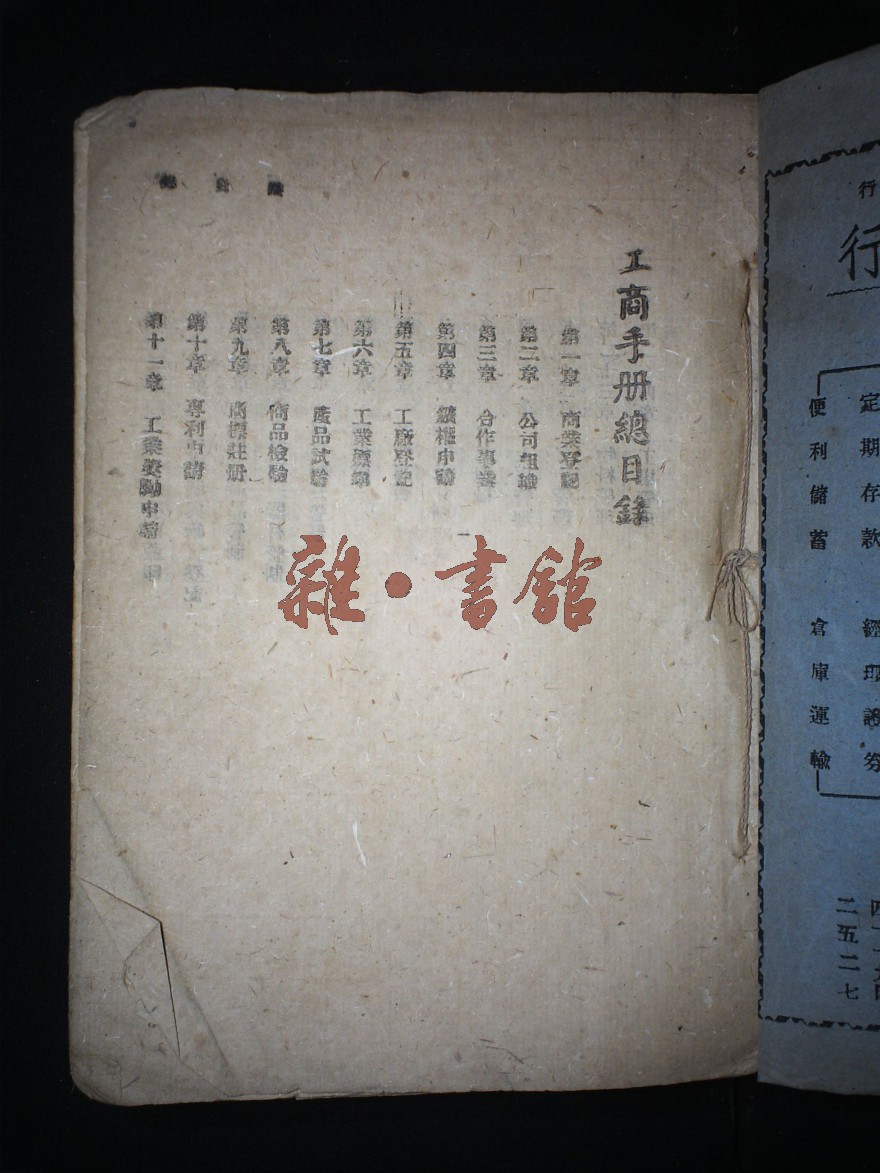 工商手册總目錄
第一章 商業登記
第二章 公司組織
第三章 合作事業
第四章 鑛權申請
第五章 工廠登記
第六章 工業標準
第七章 產品試驗
第八章 商品檢驗
第九章 商標註册
第十章 專利申請
第十一章 工業獎勵申請
總目錄
一
雜·書館
行
行
定期存款 經理證券
便利儲蓄 倉庫運輸
二五二七